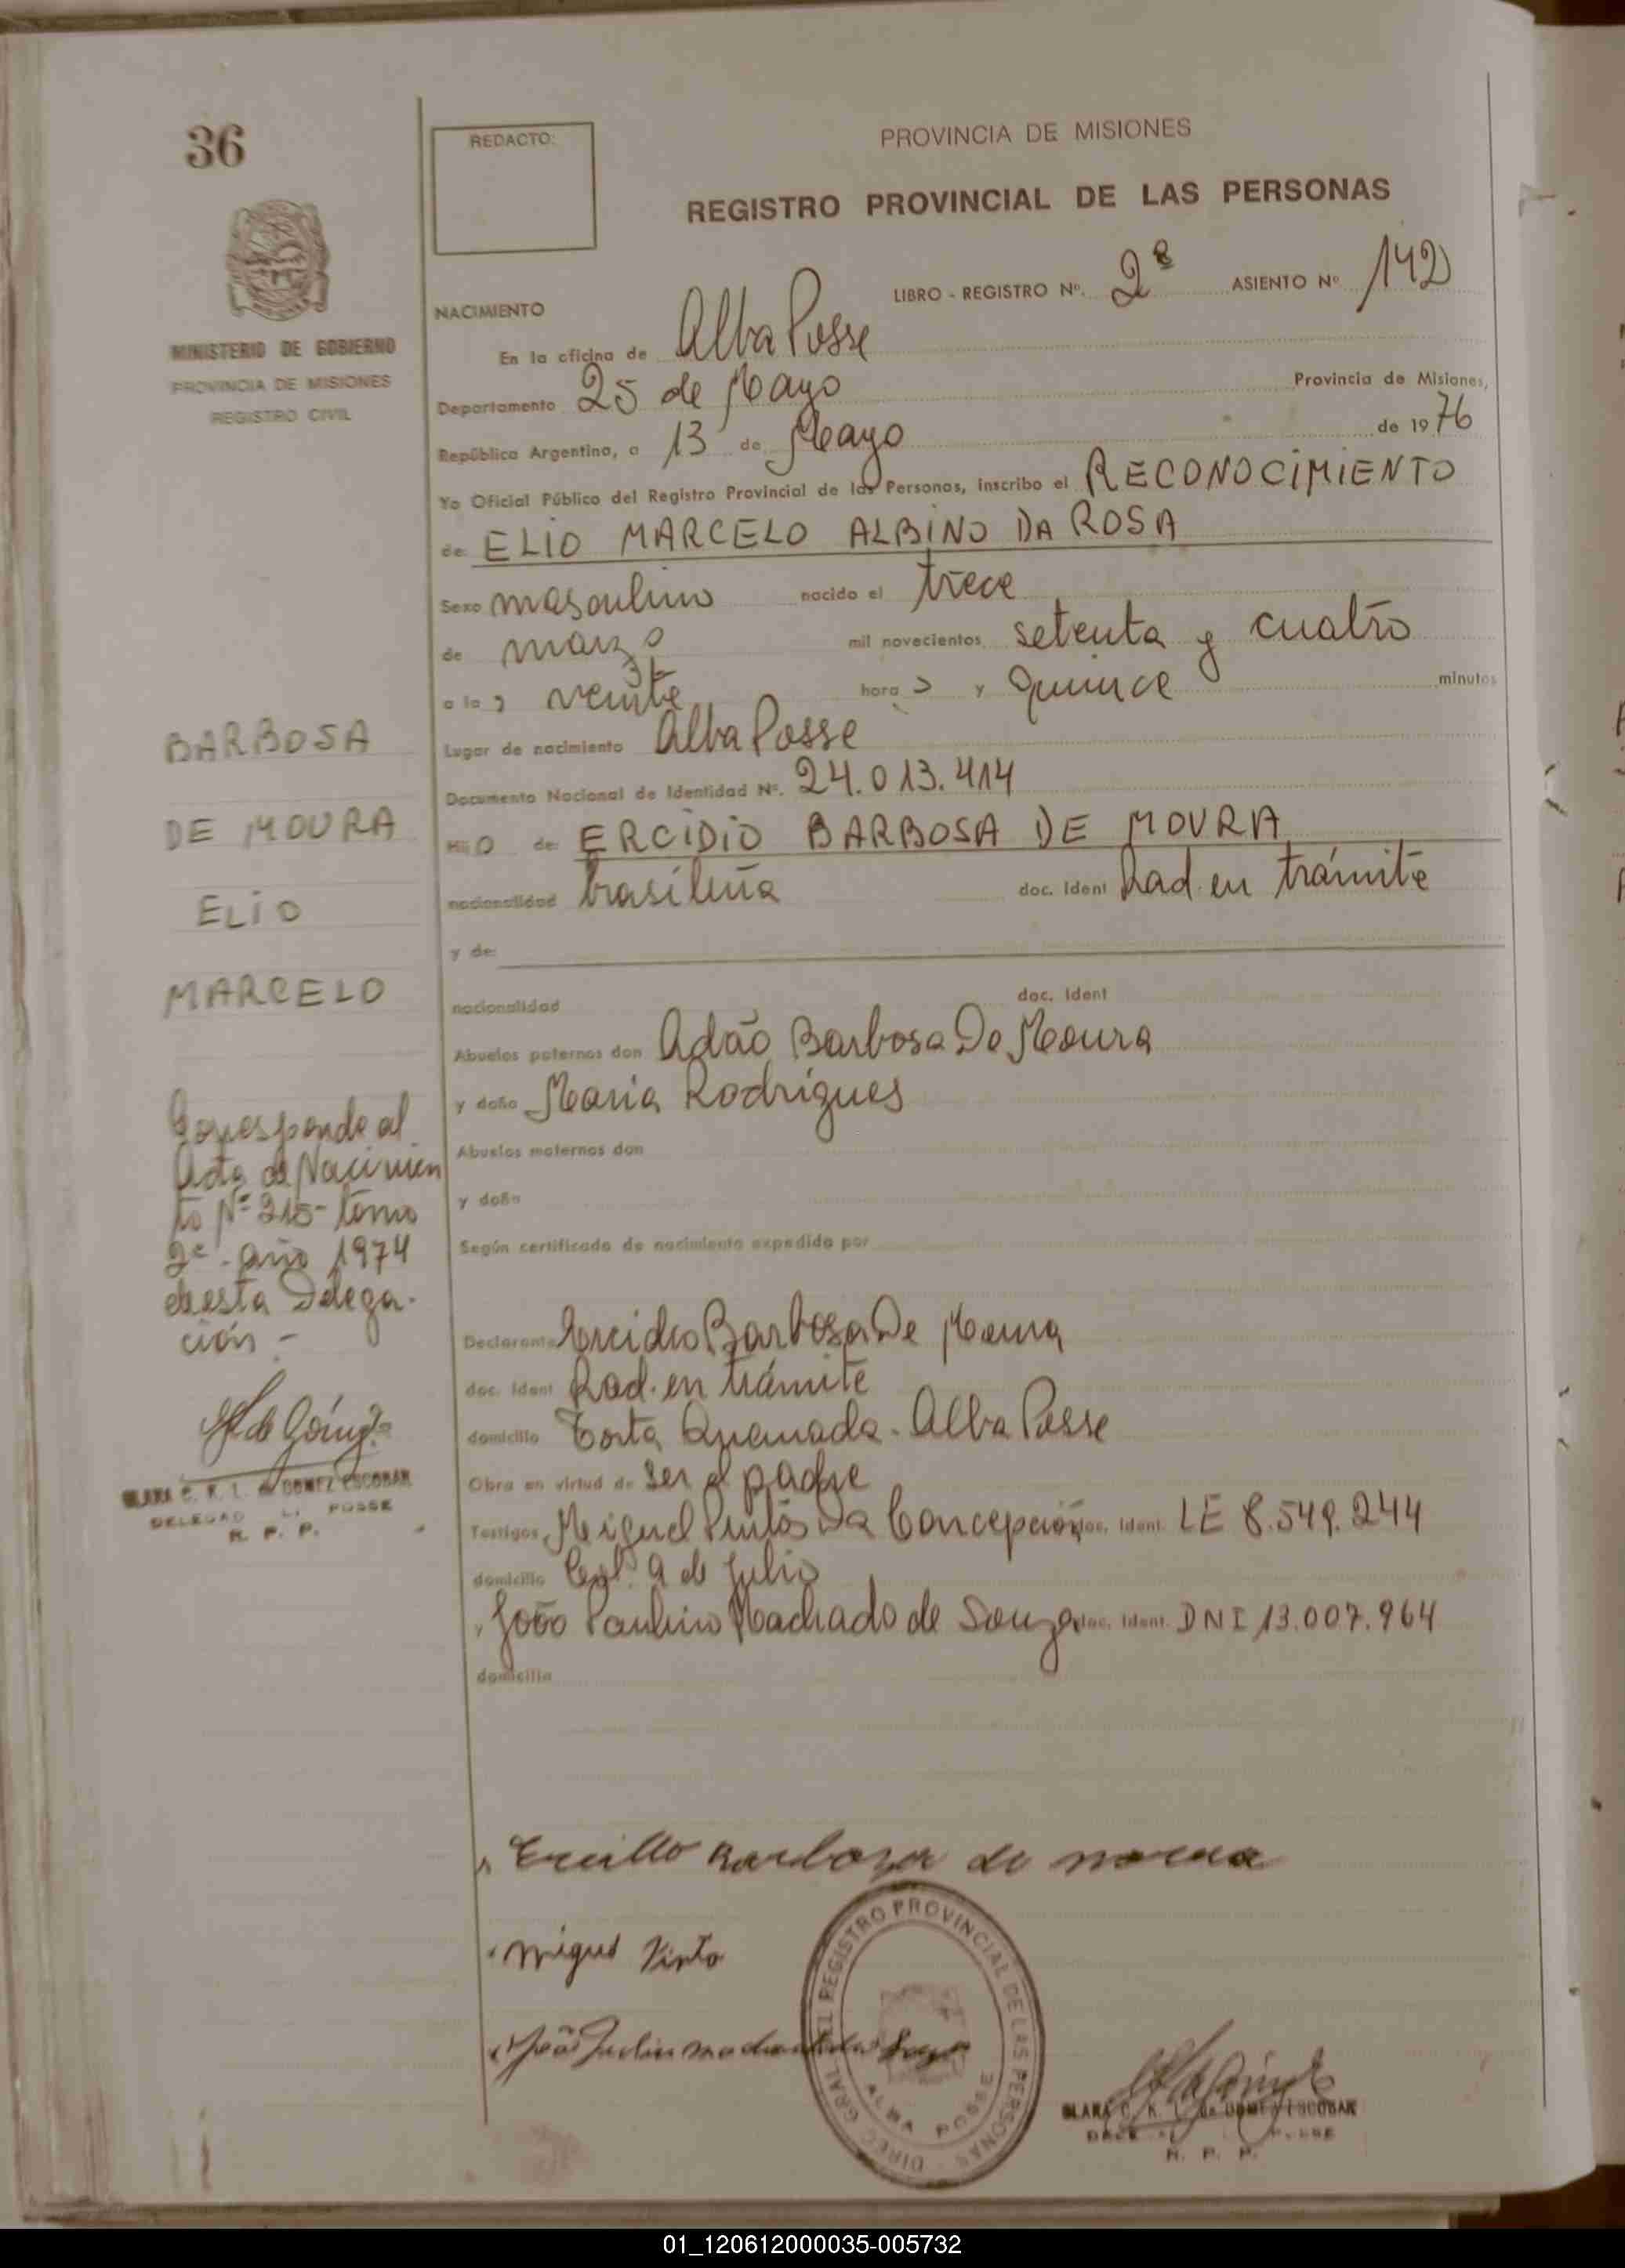 36
REDACTO:
PROVINCIA DE MISIONES
REGISTRO PROVINCIAL DE LAS PERSONAS
LIBRO - REGISTRO Nº. 2º ASIENTO Nº 142
NACIMIENTO
MINISTERIO DE GOBIERNO
PROVINCIA DE MISIONES
REGISTRO CIVIL
En la oficina de Alba Posse
Departamento 25 de Mayo Provincia de Misiones,
República Argentina, a 13 de Mayo de 1976
Yo Oficial Público del Registro Provincial de las Personas, inscribo el RECONOCIMIENTO
de: ELIO MARCELO ALBINO DA ROSA
Sexo masculino nacido el trece
de marzo mil novecientos setenta y cuatro
a las veinte horas y quince minutos
Lugar de nacimiento Alba Posse
Documento Nacional de Identidad Nº. 24.013.414
Hijo de: ERCIDIO BARBOSA DE MOURA
nacionalidad brasileña doc. Ident Rad. en trámite
y de:
nacionalidad doc. Ident
Abuelos paternos don Adão Barbosa De Moura
y doña Maria Rodrigues
Abuelos maternos don
y doña
Según certificado de nacimiento expedido por
Declarante Ercidio Barbosa De Moura
doc. Ident Rad. en trámite
domicilio Torta Quemada - Alba Posse
Obra en virtud de ser el padre
Testigos Miguel Pintos Da Concepción doc. Ident. LE 8.549.244
domicilio Col. 9 de Julio
y João Paulino Machado de Souza doc. Ident. DNI 13.007.964
domicilio
BARBOSA
DE MOURA
ELIO
MARCELO
Corresponde al
Acta de Nacimien
to Nº 215- tomo
2º - año 1974
de esta Delega-
ción -
CLARA C. K. L. de GOMEZ ESCOBAR
POSSE
R. P. P.
Barboza de moura
Miguel Pinto
DIREC. GRAL. DEL REGISTRO PROVINCIAL DE LAS PERSONAS
ALBA POSSE
CLARA C. K. L. de GOMEZ ESCOBAR
R. P. P.
01_120612000035-005732